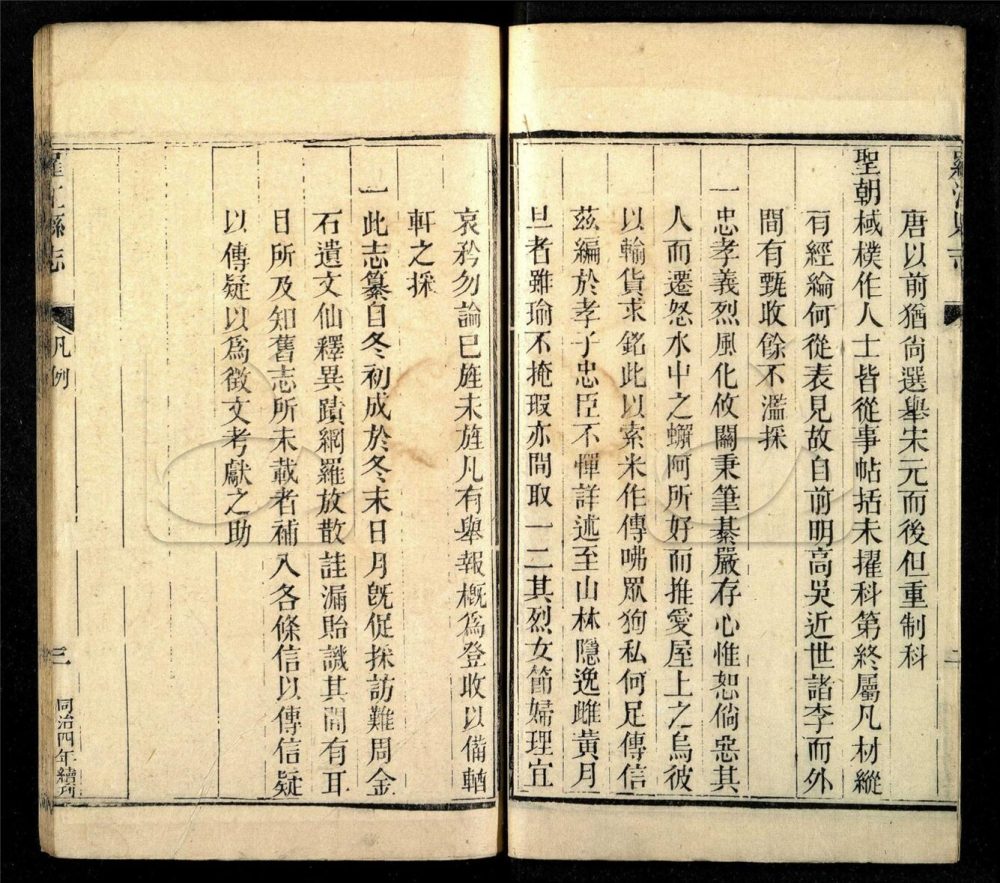 羅江縣志
唐以前猶尙選舉宋元而後但重制科
聖朝棫樸作人士皆從事帖括未擢科第終屬凡材縱
有經綸何從表見故自前明高吳近世諸李而外
間有甄收餘不濫採
一忠孝義烈風化攸關秉筆綦嚴存心惟恕倘惡其
人而遷怒水中之蠏阿所好而推愛屋上之烏彼
以輸貨求銘此以索米作傳咈眾狥私何足傳信
茲編於孝子忠臣不憚詳述至山林隱逸雌黃月
旦者雖瑜不掩瑕亦間取一二其烈女節婦理宜
哀矜勿論已旌未旌凡有舉報概爲登收以備輶
軒之採
一此志纂自冬初成於冬末日月旣促採訪難周金
石遺文仙釋異蹟網羅放散詿漏貽譏其間有耳
目所及知舊志所未載者補入各條信以傳信疑
以傳疑以爲徵文考獻之助
羅江縣志 凡例 三 同治四年續刋